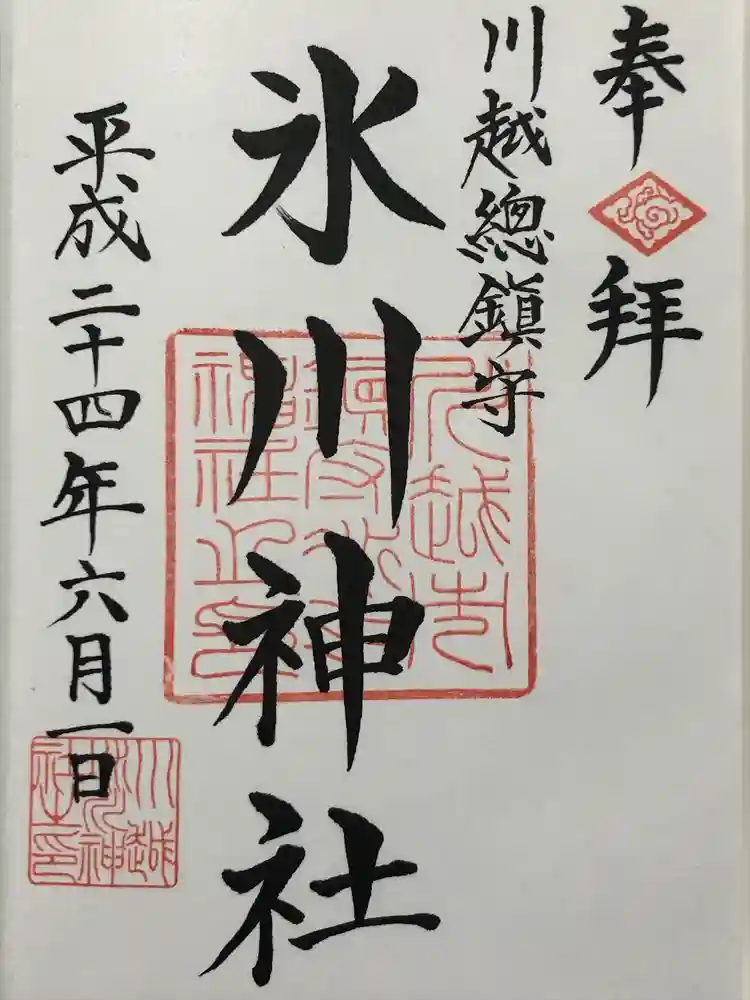 奉拜
川越總鎮守
氷川神社
平成二十四年六月一日
川越氷川神社之印